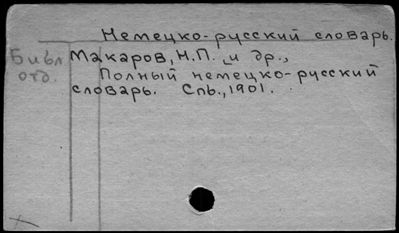 Немецко-русский словарь.
Библ. отд.
Макаров, Н.П. [и др.,
Полный немецко-русский
словарь. Спь., 1901.